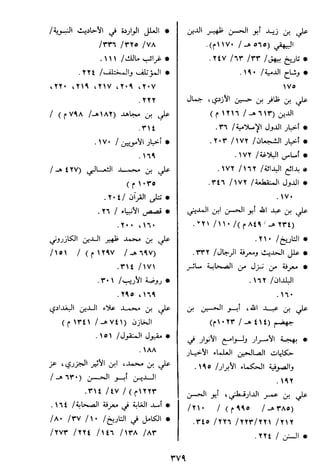 علي بن زيد أبو الحسن ظهير الدين
البيهقي (٥٦٥ هـ / ١١٧٠م).
* تاريخ بيهق/ ٦٣/ ٣٣، ٢٤٧.
* وشاح الدمية/ ١٩٠.
١٧٥
علي بن ظافر بن حسين الأزدي، جمال
الدين (٦١٣ هـ / ١٢١٦ م)
* أخبار الدول الإسلامية/ ٣٦.
* أخبار الشجعان/ ١٧٢/ ٢٠٣.
* أساس البلاغة/ ١٧٢.
* بدائع البدائة/ ١٧٢/ ١٦٢.
* الدول المنقطعة/ ١٧٢/ ٣٤٦.
١٧٠.
علي بن عبد الله أبو الحسن ابن المديني
(٢٣٤ هـ / ٨٤٩ م) / ١١٠/ ٢٢١.
* التاريخ/ ٢١٠.
* علل الحديث ومعرفة الرجال/ ٣٣٢.
* معرفة من نزل من الصحابة سائر
البلدان/ ١٦٢.
١٦٠.
علي بن عبد الله، أبو الحسن بن
جهضم (٤١٤ هـ / ١٠٢٣م)
* بهجة الأسرار ولوامع الأنوار في
حكايات الصالحين العلماء الأخيار
والصوفية الحكماء الأبرار/ ١٩٥.
١٩٢.
علي بن عمر الدارقطني، أبو الحسن
(٣٨٥ هـ / ٩٩٥ م) / ٢١٠/
٢١٢/ ٢٢١/ ٢٢٣/ ٢٢٦/ ٣٤٥.
* السنن / ٢٢٤.
* العلل الواردة في الأحاديث النبوية/
٧٨/ ٣٢٥/ ٣٣٦/
* غرائب مالك/ ١١١.
* المؤتلف والمختلف/ ٢٢٤.
٢٠٧، ٢٠٩، ٢١٧، ٢١٩، ٢٢٠،
٢٢٢.
علي بن مجاهد (١٨٢هـ/ ٧٩٨ م) /
٣١٤.
* أخبار الأمويين/ ١٧٠.
١٦٩.
علي بن محمد الثعالبي (٤٢٧ هـ /
١٠٣٥ م)
* تتلى القرآن/ ٢٠٤.
* قصص الأنبياء / ٢٦.
١٦٠، ٢٠٠.
علي بن محمد ظهير الدين الكازروني
(٦٩٧ هـ / ١٢٩٧ م) / ١٥١/
١٧١/ ٣١٤.
* روضة الأريب/ ٣٠١.
١٦٩، ٢٩٥.
علي بن محمد علاء الدين البغدادي
الخازن (٧٤١ هـ / ١٣٤١ م)
* مقبول المنقول/ ١٥١.
١٨٨.
علي بن محمد، ابن الأثير الجزري، عز
الدين أبو الحسن (٦٣٠ هـ /
١٢٢٣م) / ٤٧/ ٣١٤.
* أسد الغابة في معرفة الصحابة/ ١٦٤.
* الكامل في التاريخ/ ١٠/ ٣٧/ ٨٠/
٨٣/ ١٣٨/ ١٤٦/ ٢٢٤/ ٢٧٣/
٣٧٩